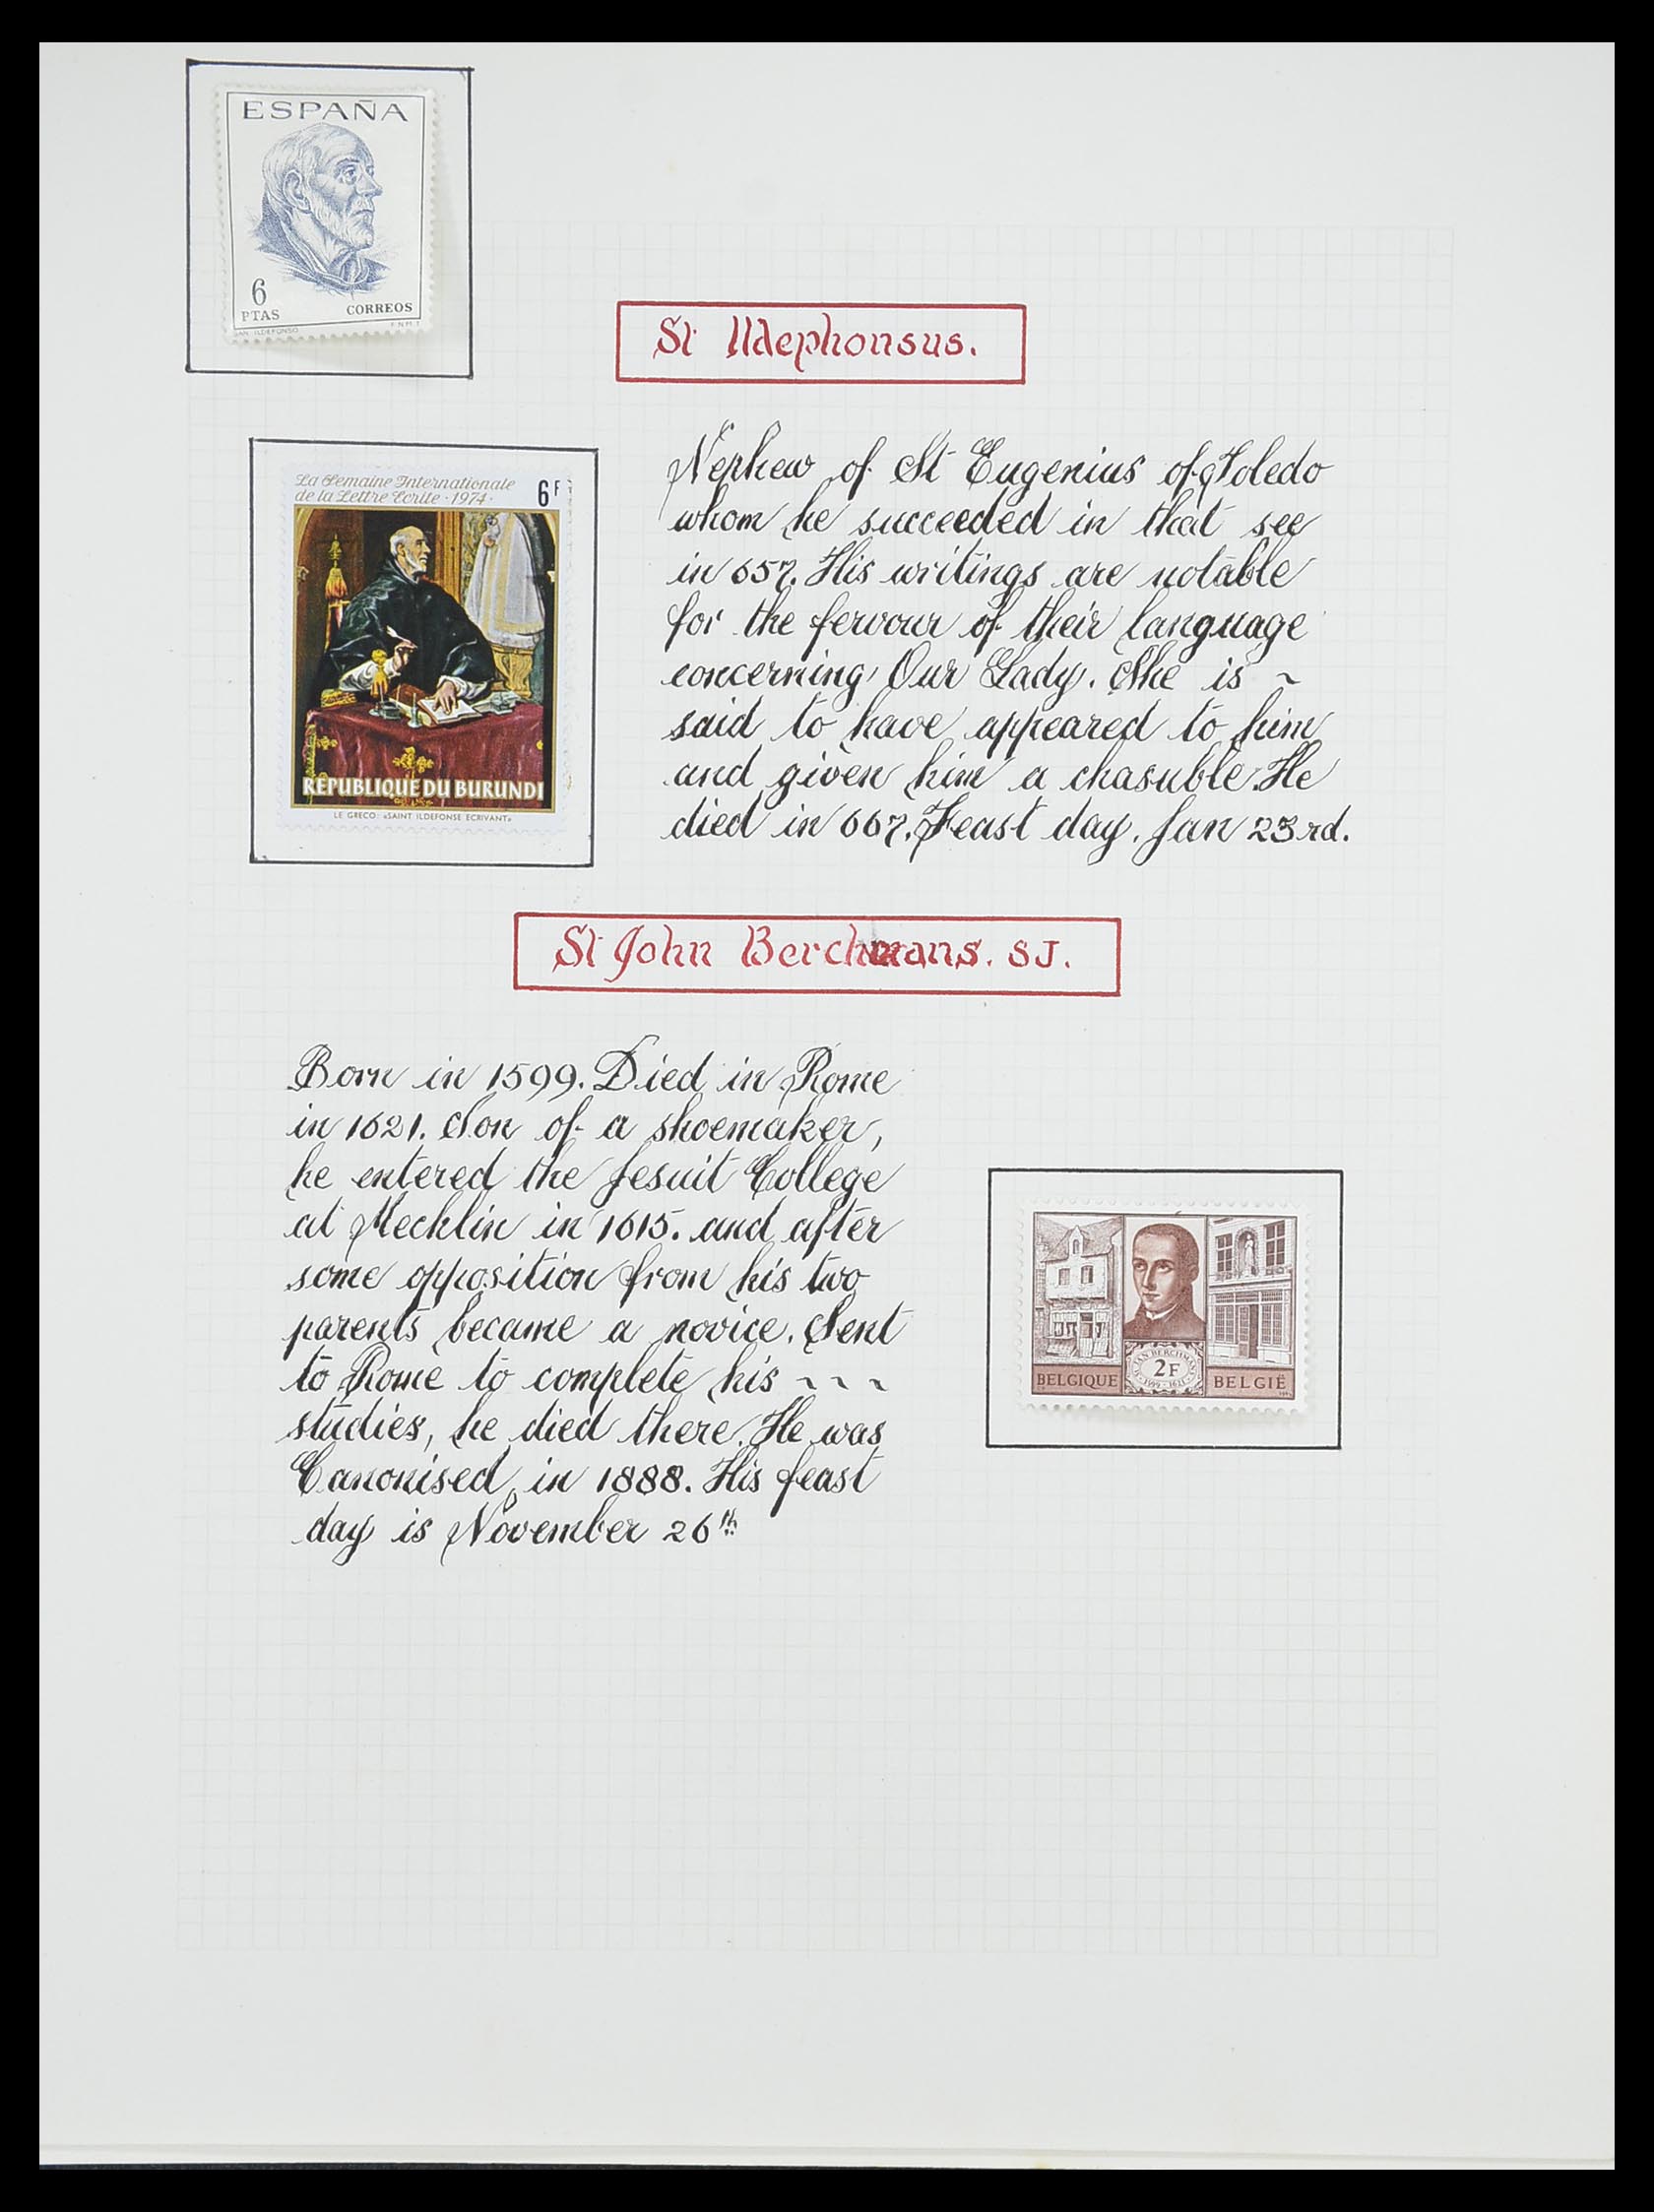 ESPAÑA
6
PTAS
CORREOS
SAN ILDEFONSO
F.N.M.T
St Ildephonsus.
La Semaine Internationale
de la Lettre Ecrite · 1974 ·
6F
RÉPUBLIQUE DU BURUNDI
LE GRECO: «SAINT ILDEFONSE ECRIVANT»
Nephew of St Eugenius of Toledo
whom he succeeded in that see
in 657. His writings are notable
for the fervour of their language
concerning Our Lady. She is ~
said to have appeared to him
and given him a chasuble. He
died in 667. Feast day. Jan 23rd.
St John Berchmans. SJ.
Born in 1599. Died in Rome
in 1621. Son of a shoemaker,
he entered the Jesuit College
at Mechlin in 1615. and after
some opposition from his two
parents became a novice. Sent
to Rome to complete his ~ ~ ~
studies, he died there. He was
Canonised in 1888. His feast
day is November 26th
JAN BERCHMANS
2F
1599 - 1621
BELGIQUE
BELGIË